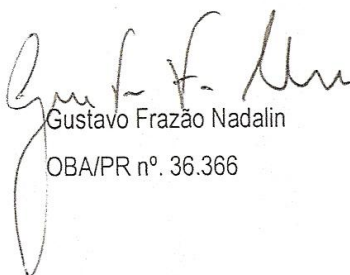 Gustavo Frazão Nadalin
OBA/PR nº. 36.366